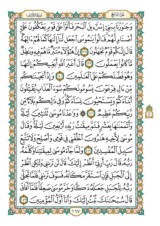 وَجَٰوَزْنَا بِبَنِىٓ إِسْرَٰٓءِيلَ ٱلْبَحْرَ فَأَتَوْا۟ عَلَىٰ قَوْمٍ يَعْكُفُونَ عَلَىٰٓ
أَصْنَامٍ لَّهُمْ قَالُوا۟ يَٰمُوسَى ٱجْعَل لَّنَآ إِلَٰهًا كَمَا لَهُمْ ءَالِهَةٌ
قَالَ إِنَّكُمْ قَوْمٌ تَجْهَلُونَ إِنَّ هَٰٓؤُلَآءِ مُتَبَّرٌ مَّا هُمْ فِيهِ وَبَٰطِلٌ
مَّا كَانُوا۟ يَعْمَلُونَ قَالَ أَغَيْرَ ٱللَّهِ أَبْغِيكُمْ إِلَٰهًا
وَهُوَ فَضَّلَكُمْ عَلَى ٱلْعَٰلَمِينَ وَإِذْ أَنجَيْنَٰكُم
مِّنْ ءَالِ فِرْعَوْنَ يَسُومُونَكُمْ سُوٓءَ ٱلْعَذَابِ يُقَتِّلُونَ
أَبْنَآءَكُمْ وَيَسْتَحْيُونَ نِسَآءَكُمْ وَفِى ذَٰلِكُم بَلَآءٌ مِّن
رَّبِّكُمْ عَظِيمٌ وَوَٰعَدْنَا مُوسَىٰ ثَلَٰثِينَ لَيْلَةً
وَأَتْمَمْنَٰهَا بِعَشْرٍ فَتَمَّ مِيقَٰتُ رَبِّهِۦٓ أَرْبَعِينَ لَيْلَةً وَقَالَ
مُوسَىٰ لِأَخِيهِ هَٰرُونَ ٱخْلُفْنِى فِى قَوْمِى وَأَصْلِحْ وَلَا تَتَّبِعْ
سَبِيلَ ٱلْمُفْسِدِينَ وَلَمَّا جَآءَ مُوسَىٰ لِمِيقَٰتِنَا وَكَلَّمَهُۥ
رَبُّهُۥ قَالَ رَبِّ أَرِنِىٓ أَنظُرْ إِلَيْكَ قَالَ لَن تَرَىٰنِى وَلَٰكِنِ ٱنظُرْ
إِلَى ٱلْجَبَلِ فَإِنِ ٱسْتَقَرَّ مَكَانَهُۥ فَسَوْفَ تَرَىٰنِى فَلَمَّا تَجَلَّىٰ
رَبُّهُۥ لِلْجَبَلِ جَعَلَهُۥ دَكًّا وَخَرَّ مُوسَىٰ صَعِقًا فَلَمَّآ أَفَاقَ
قَالَ سُبْحَٰنَكَ تُبْتُ إِلَيْكَ وَأَنَا۠ أَوَّلُ ٱلْمُؤْمِنِينَ
١٦٧